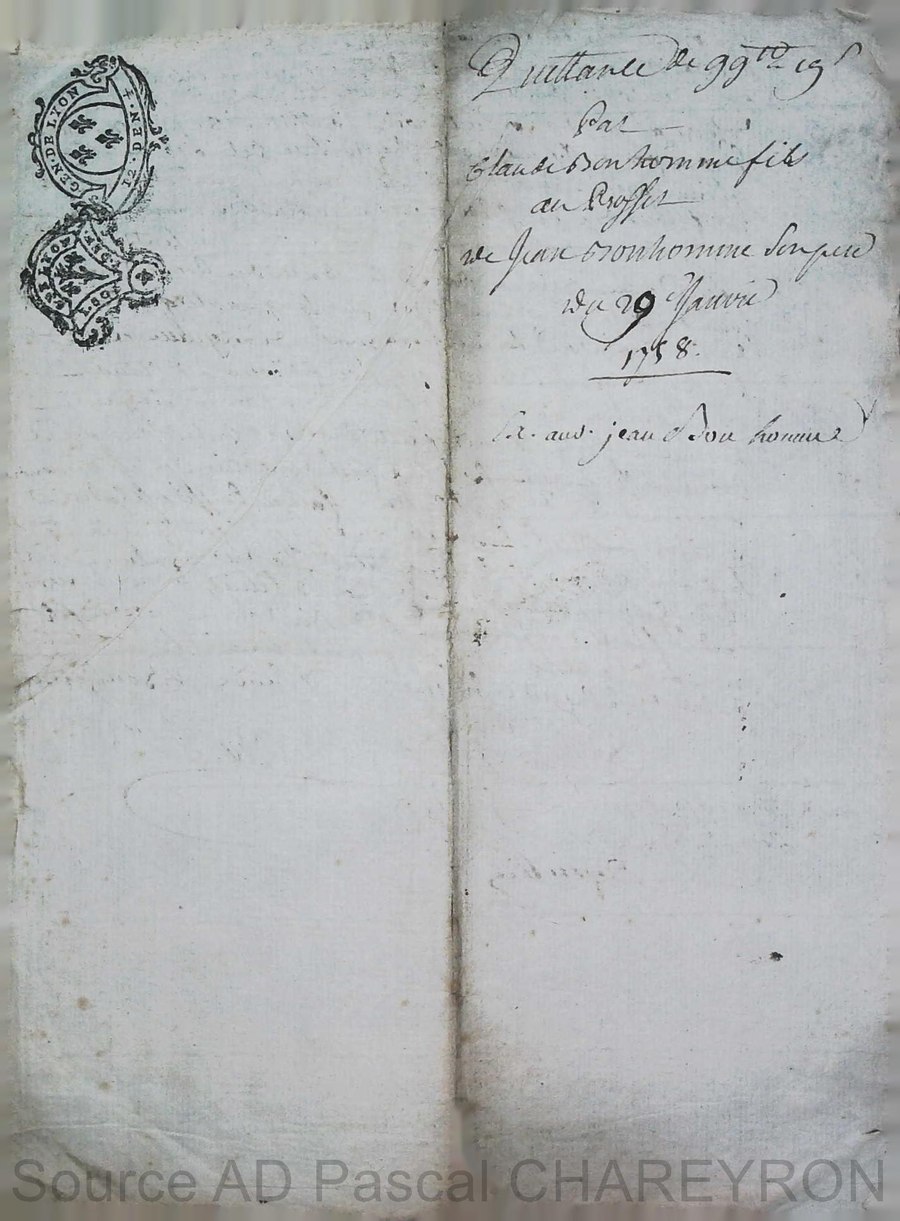 GEN. DE LYON
4. DEN. ET
LYON
Quittance de 99tt 19s
Par
Claude Bonhomme fils
au Proffit
de Jean Bonhomme son pere
du 29 Janvie
1758.
jean Bon homme
Source AD Pascal CHAREYRON